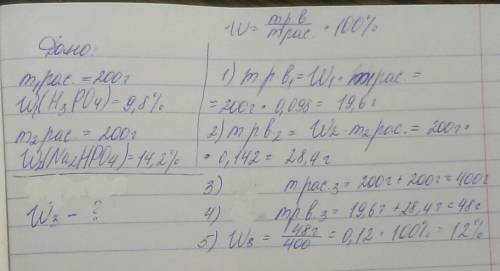 W = m р.в / m рас. · 100%
Дано:
m₁ рас. = 200г
W₁(H₃PO₄) = 9,8%
m₂ рас. = 200г
W₂(Na₂HPO₄) = 14,2%
W₃ - ?
1) m р.в₁ = W₁ · m₁рас. =
= 200г · 0,098 = 19,6г
2) m р.в₂ = W₂ · m₂ рас. = 200г ·
· 0,142 = 28,4г
3) m рас.₃ = 200г + 200г = 400г
4) m р.в.₃ = 19,6г + 28,4г = 48г
5) W₃ = 48г / 400 = 0,12 · 100% = 12%